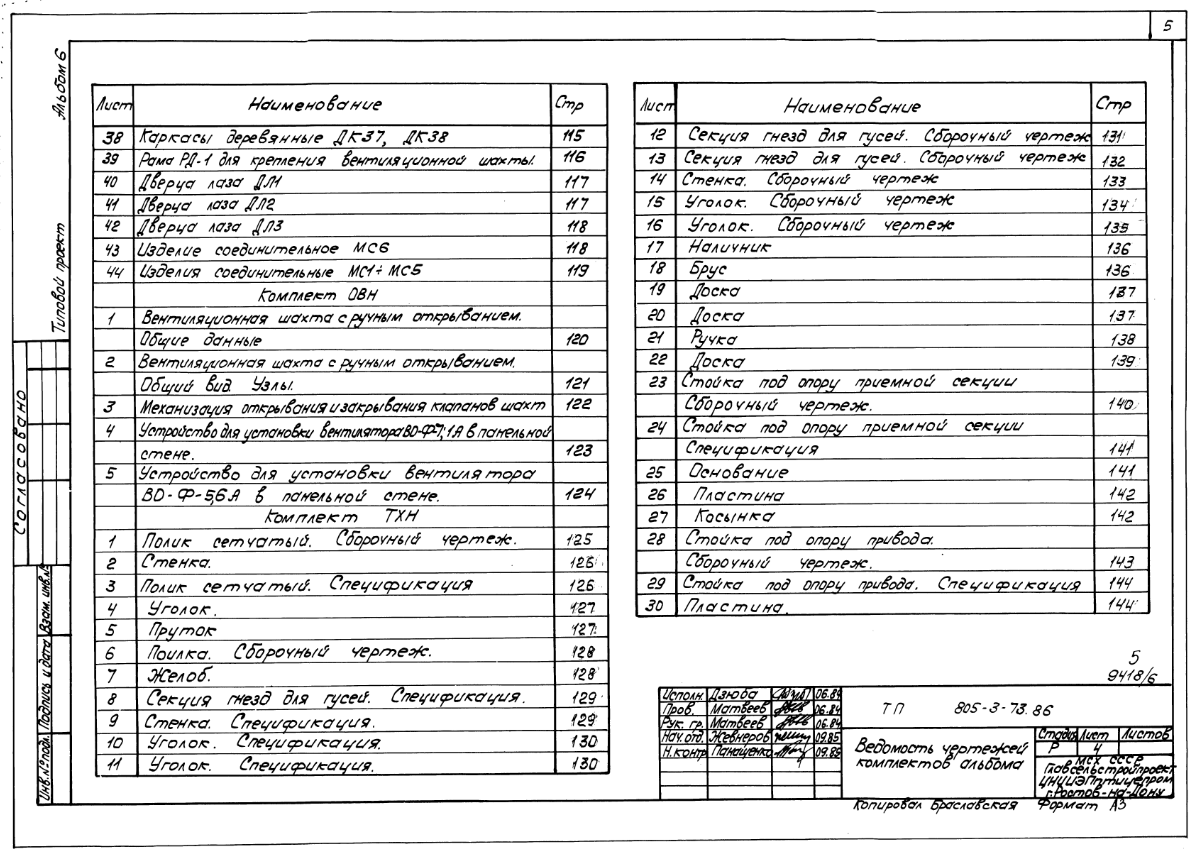 5
Альбом 6
Типовой проект
Согласовано
Взам. инв.№
Подпись и дата
Инв.№подл.
Лист Наименование Стр
38 Каркасы деревянные ДК37, ДК38 115
39 Рама РД-1 для крепления вентиляционной шахты. 116
40 Дверца лаза ДЛ1 117
41 Дверца лаза ДЛ2 117
42 Дверца лаза ДЛ3 118
43 Изделие соединительное МС6 118
44 Изделия соединительные МС1÷МС5 119
Комплект ОВН
1 Вентиляционная шахта с ручным открыванием.
Общие данные 120
2 Вентиляционная шахта с ручным открыванием.
Общий вид Узлы. 121
3 Механизация открывания и закрывания клапанов шахт 122
4 Устройство для установки вентилятора ВО-Ф-7,1А в панельной
стене. 123
5 Устройство для установки вентилятора
ВО-Ф-5,6А в панельной стене. 124
Комплект ТХН
1 Полик сетчатый. Сборочный чертеж. 125
2 Стенка. 125
3 Полик сетчатый. Спецификация 126
4 Уголок. 127
5 Пруток 127
6 Поилка. Сборочный чертеж. 128
7 Желоб. 128
8 Секция гнезд для гусей. Спецификация. 129
9 Стенка. Спецификация. 129
10 Уголок. Спецификация. 130
11 Уголок. Спецификация. 130
Лист Наименование Стр
12 Секция гнезд для гусей. Сборочный чертеж 131
13 Секция гнезд для гусей. Сборочный чертеж 132
14 Стенка. Сборочный чертеж 133
15 Уголок. Сборочный чертеж 134
16 Уголок. Сборочный чертеж 135
17 Наличник 136
18 Брус 136
19 Доска 137
20 Доска 137
21 Ручка 138
22 Доска 139
23 Стойка под опору приемной секции
Сборочный чертеж. 140
24 Стойка под опору приемной секции
Спецификация 141
25 Основание 141
26 Пластина 142
27 Косынка 142
28 Стойка под опору привода.
Сборочный чертеж. 143
29 Стойка под опору привода. Спецификация 144
30 Пластина. 144
5
9418/6
Исполн. Дзюба 06.84
Пров. Матвеев 06.84
Рук. гр. Матвеев 06.84
Нач. отд. Жевнеров 09.85
Н.контр. Панащенко 09.85
ТП 805-3-73.86
Ведомость чертежей
комплектов альбома
Стадия Лист Листов
Р 4
МСХ СССР
Главсельстройпроект
ЦНИИЭПптицепром
г. Ростов-на-Дону
Копировал Браславская Формат А3